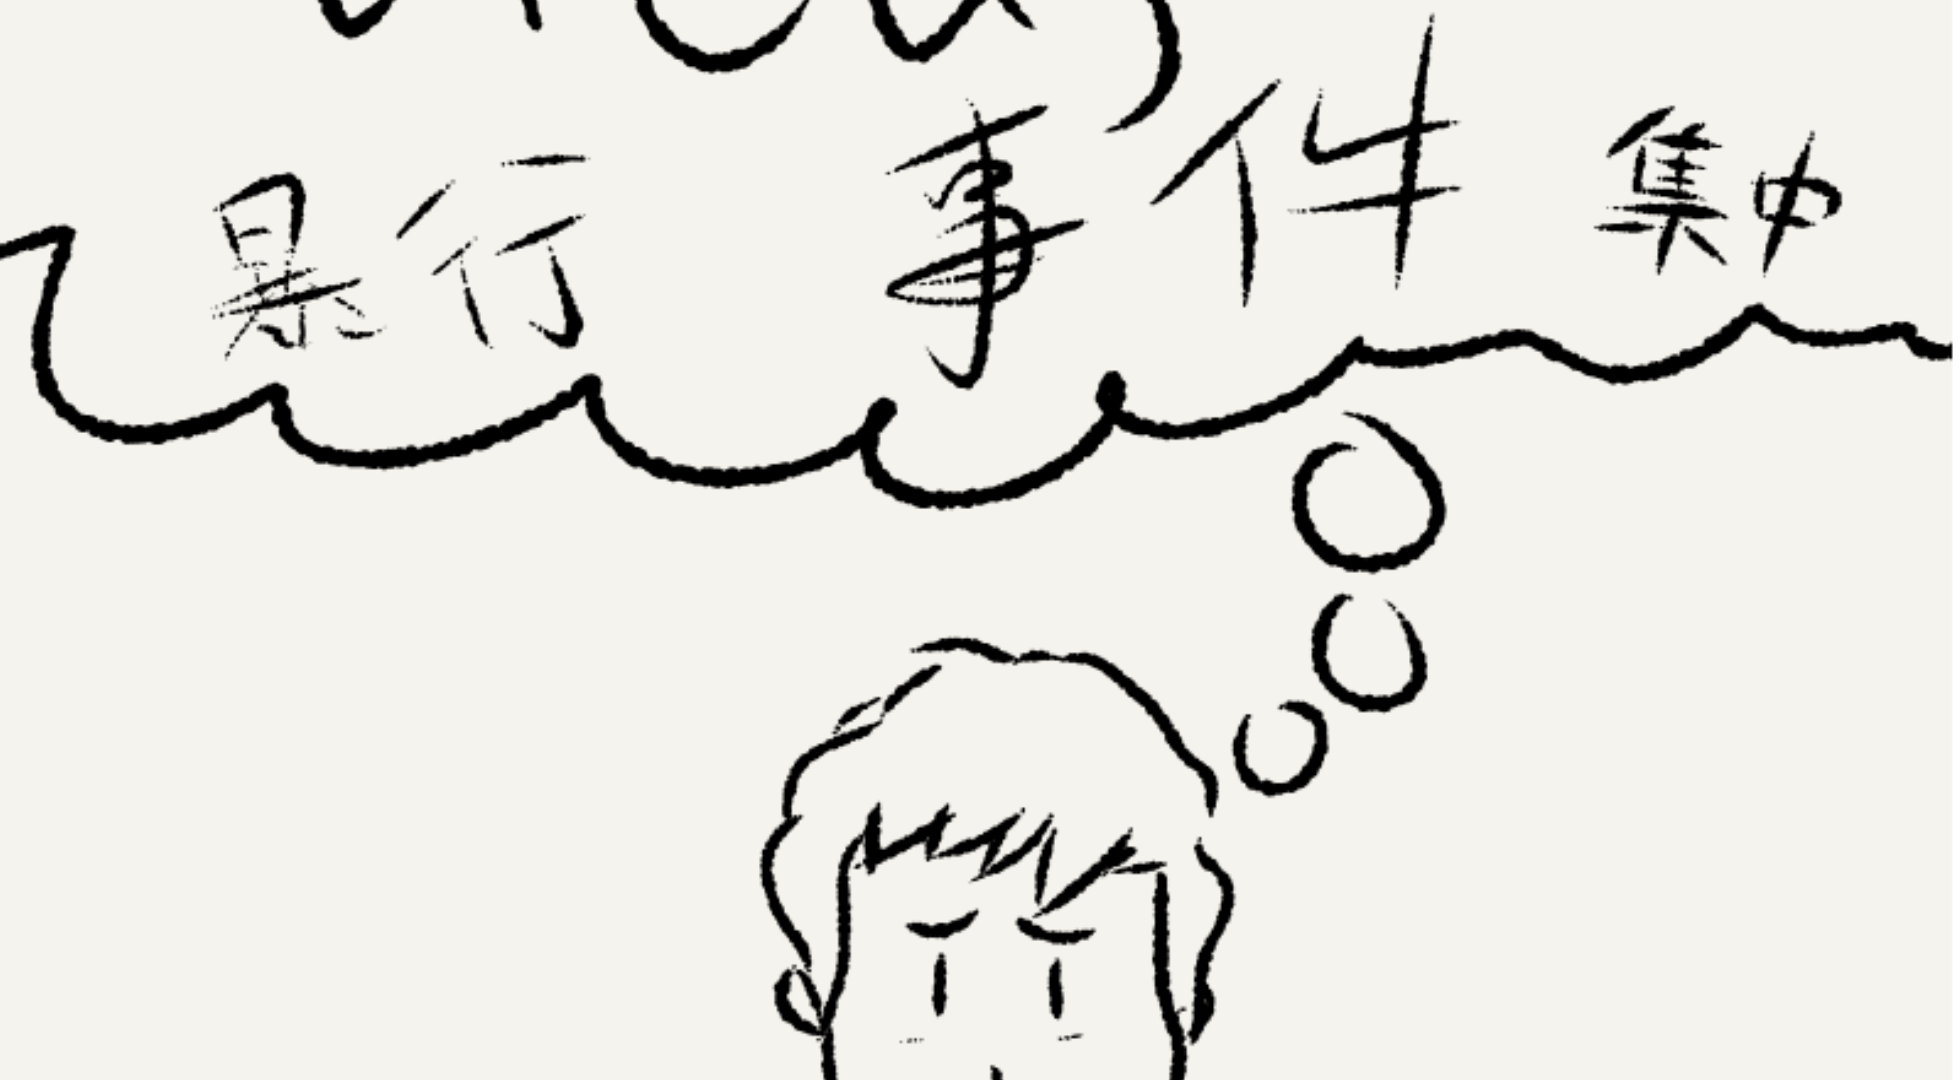 暴行 事件 集中